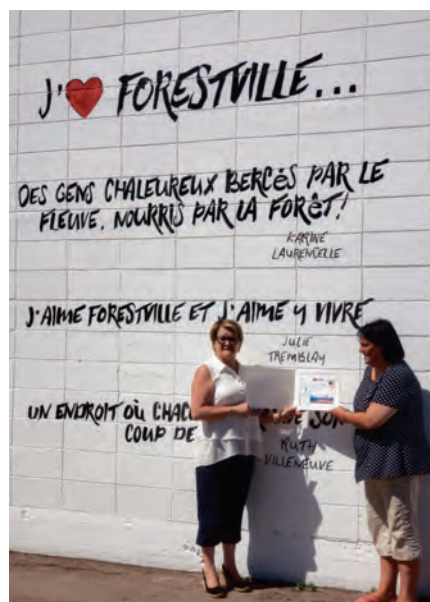 J'❤ FORESTVILLE...
DES GENS CHALEUREUX BERCÉS PAR LE
FLEUVE, NOURRIS PAR LA FORÊT!
KARINE
LAURENCELLE
J'AIME FORESTVILLE ET J'AIME Y VIVRE
JULIE
TREMBLAY
UN ENDROIT OÙ
COUP DE
RUTH
VILLENEUVE